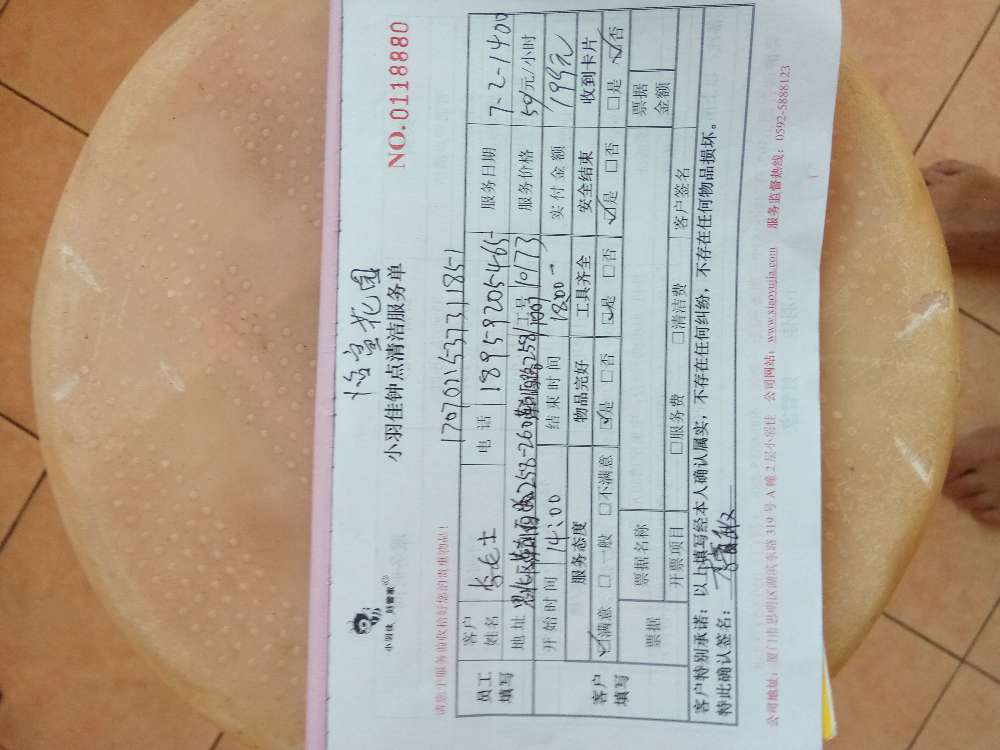 怡富花园
小羽佳 好管家
小羽佳钟点清洁服务单 NO.0118880
请您于服务前收拾好您的贵重物品!
170702153731185-1
员工填写 客户姓名 李女士 电话 18959205465 服务日期 7、2-1400
地址 258-260 工号 10173 服务价格 50元/小时
开始时间 14:00 结束时间 1800 实付金额 199元
客户填写 服务态度 物品完好 工具齐全 安全结束 收到卡片
☑满意 □一般 □不满意 ☑是 □否 ☑是 □否 ☑是 □否 □是 ☑否
票据 票据名称 票据金额
开票项目 □服务费 □清洁费 客户签名
客户特别承诺:以上填写经本人确认属实,不存在任何纠纷,不存在任何物品损坏。
特此确认签名:
公司地址:厦门市思明区湖滨东路 319 号 A 幢 2 层小羽佳 公司网站:www.xiaoyujia.com 服务监督热线:0592-5888123